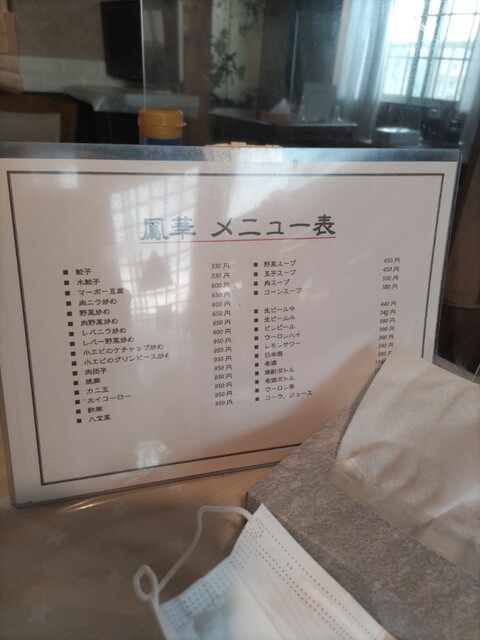 鳳華 メニュー表
■ 餃子 330円
■ 水餃子 330円
■ マーボー豆腐 600円
■ 肉ニラ炒め 650円
■ 野菜炒め 600円
■ 肉野菜炒め 650円
■ レバニラ炒め 600円
■ レバー野菜炒め 650円
■ 小エビのケチャップ炒め 950円
■ 小エビのグリンピース炒め 950円
■ 肉団子 950円
■ 焼豚 950円
■ カニ玉 950円
■ ホイコーロー 850円
■ 酢豚 950円
■ 八宝菜 850円
■ 野菜スープ 450円
■ 玉子スープ 450円
■ 肉スープ 500円
■ コーンスープ 580円
■ 生ビール中 440円
■ 生ビール小
■ ビンビール
■ ウーロンハイ
■ レモンサワー
■ 日本酒
■ 老酒
■ 焼酎ボトル
■ 老酒ボトル
■ ウーロン茶
■ コーラ、ジュース